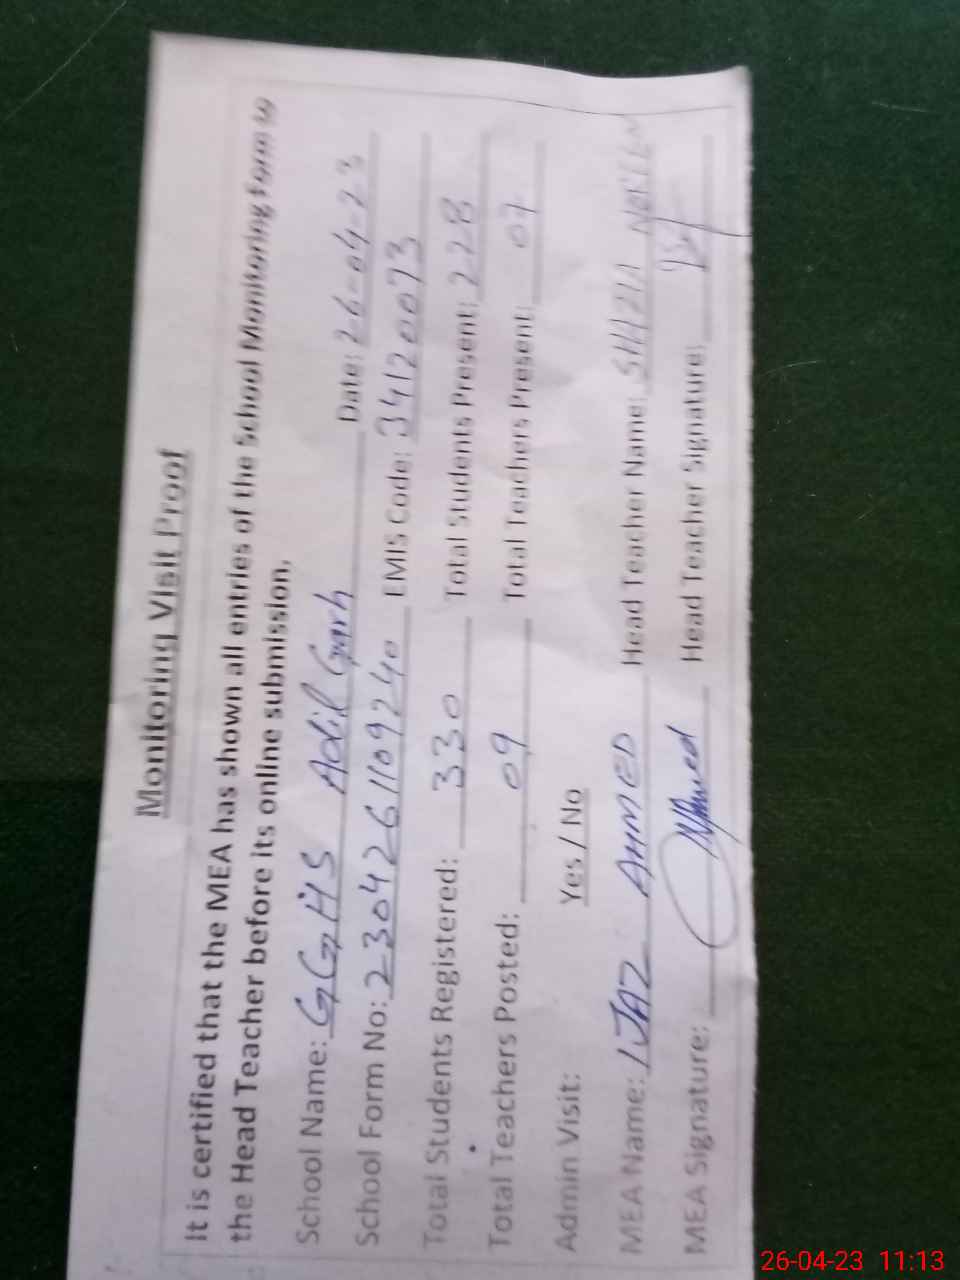 Monitoring Visit Proof
It is certified that the MEA has shown all entries of the School Monitoring Form to
the Head Teacher before its online submission.
School Name: GGHS Adil Garh Date: 26-04-23
School Form No: 2304261109240 EMIS Code: 34120073
Total Students Registered: 330 Total Students Present: 228
Total Teachers Posted: 09 Total Teachers Present: 07
Admin Visit: Yes / No
MEA Name: IJAZ AHMED Head Teacher Name: SHAZIA
MEA Signature: Head Teacher Signature:
26-04-23 11:13